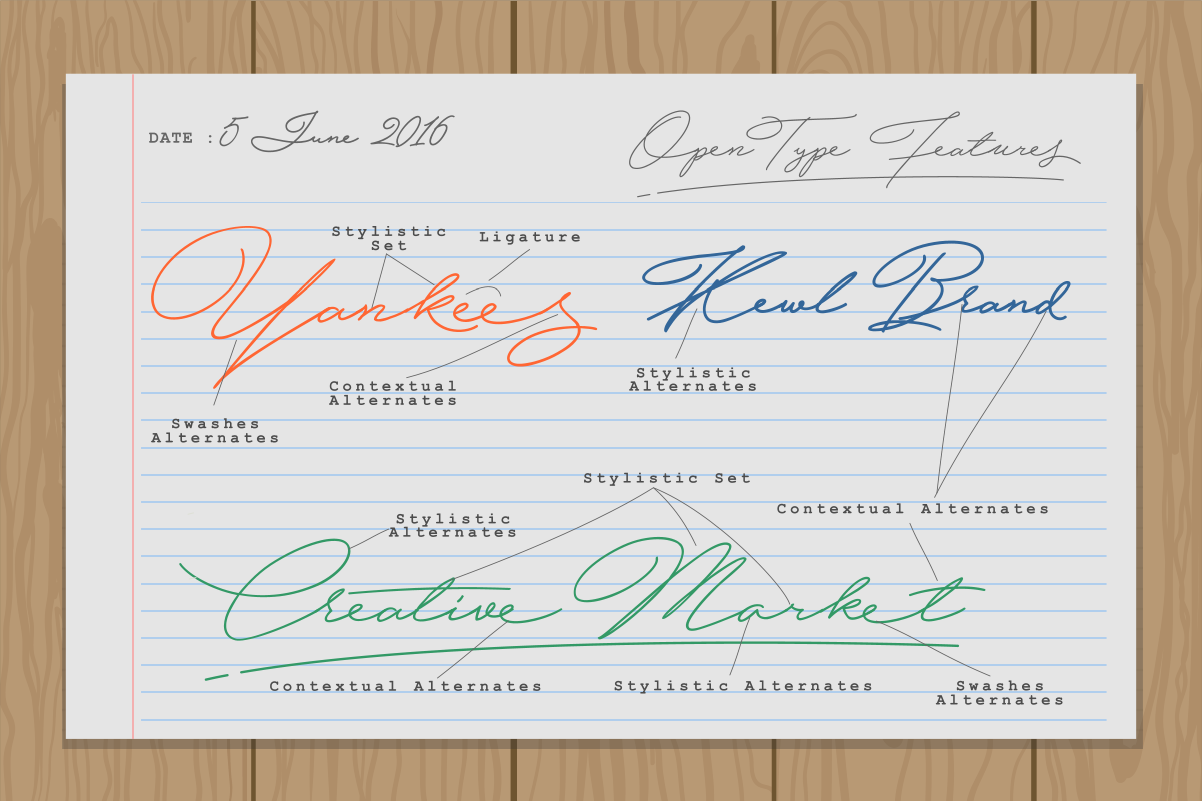 DATE : 5 June 2016
OpenType Features
Stylistic
Set
Ligature
Yankees
Hewl Brand
Contextual
Alternates
Stylistic
Alternates
Swashes
Alternates
Stylistic Set
Contextual Alternates
Stylistic
Alternates
Creative Market
Contextual Alternates
Stylistic Alternates
Swashes
Alternates